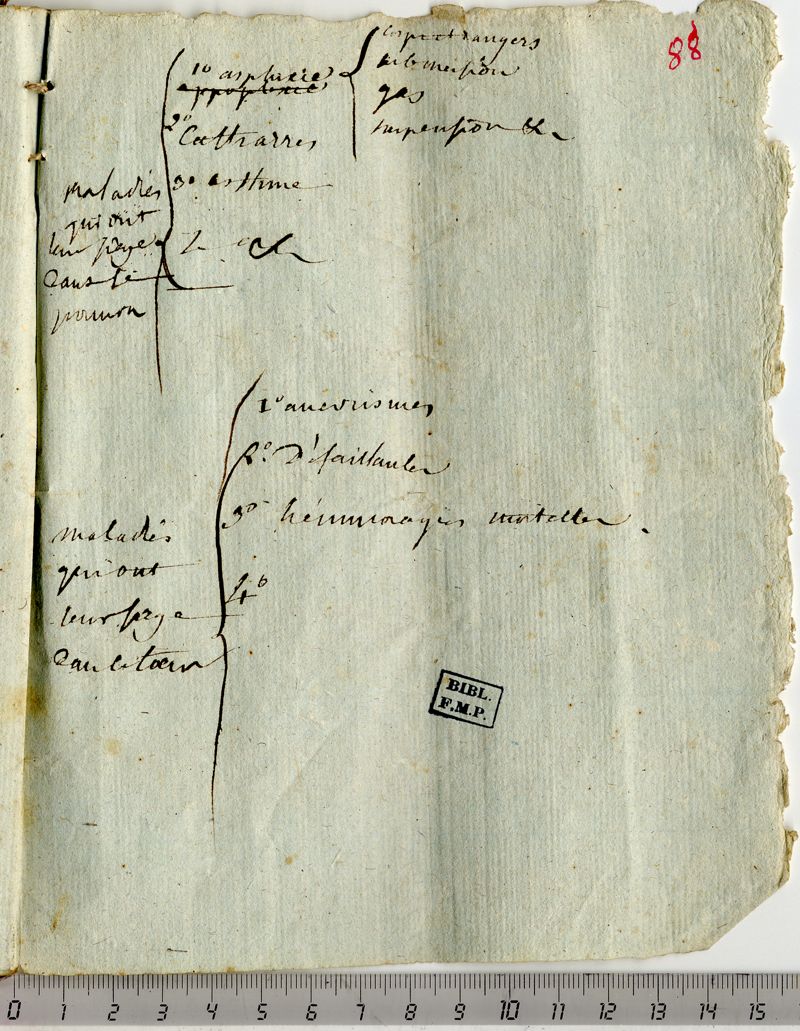 88
corps etrangers
1° asphixie
appoplexie
submersion
gas
suspension &c
2° Catharres
3° asthme
4° &c
maladies
qui ont
leur siege
dans le
poumon
1° anevrismes
2° Défaillances
3° hémmoragies mortelles.
4°
maladies
qui ont
leur siege
dans le coeur
BIBL.
F.M.P.
0 1 2 3 4 5 6 7 8 9 10 11 12 13 14 15